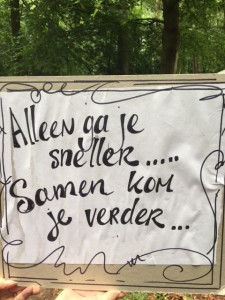 Alleen ga je
sneller.....
Samen kom
je verder...